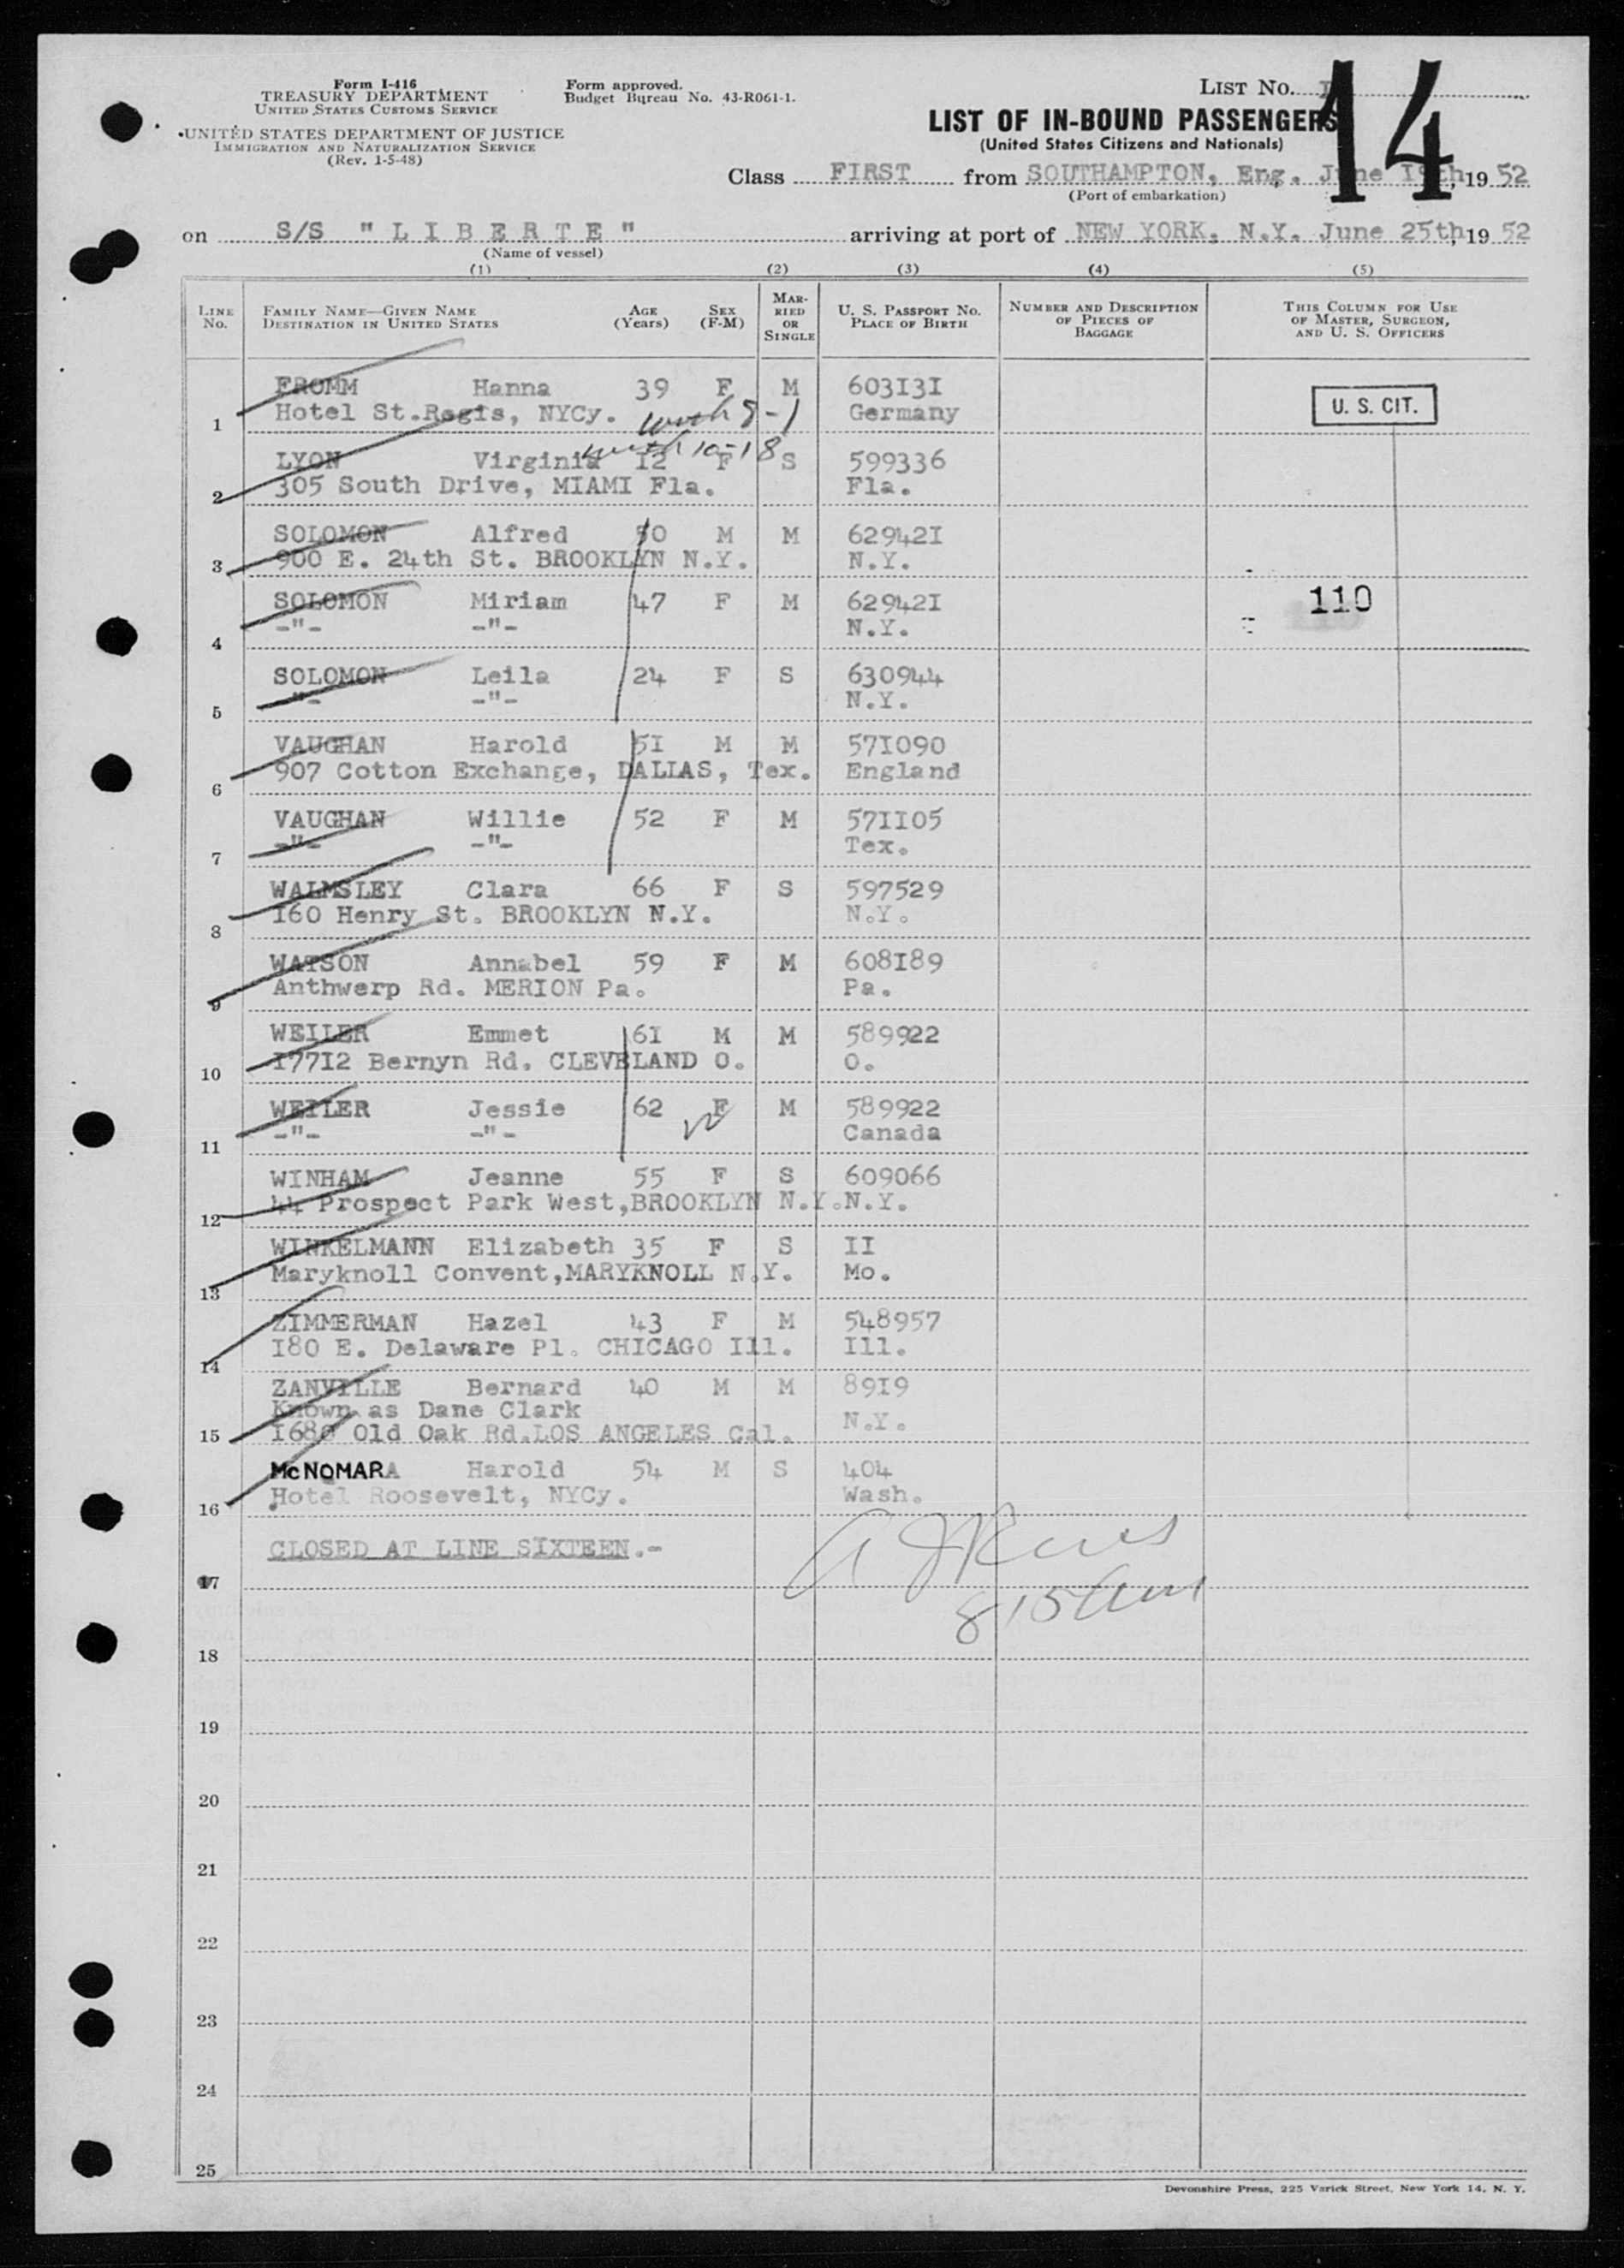 Form I-416
TREASURY DEPARTMENT
UNITED STATES CUSTOMS SERVICE
UNITED STATES DEPARTMENT OF JUSTICE
IMMIGRATION AND NATURALIZATION SERVICE
(Rev. 1-5-48)
Form approved.
Budget Bureau No. 43-R061-1.
LIST NO.
14
LIST OF IN-BOUND PASSENGERS
(United States Citizens and Nationals)
Class FIRST from SOUTHAMPTON, Eng. June 19th, 1952
(Port of embarkation)
on S/S "LIBERTE" arriving at port of NEW YORK, N.Y. June 25th, 1952
(Name of vessel)
(1) (2) (3) (4) (5)
LINE NO. FAMILY NAME—GIVEN NAME DESTINATION IN UNITED STATES AGE (Years) SEX (F-M) MARRIED OR SINGLE U. S. PASSPORT NO. PLACE OF BIRTH NUMBER AND DESCRIPTION OF PIECES OF BAGGAGE THIS COLUMN FOR USE OF MASTER, SURGEON, AND U. S. OFFICERS
FROMM Hanna 39 F M 603I3I
1 Hotel St.Regis, NYCy. with 8-1 Germany
U. S. CIT.
with 10-18
LYON Virginia I2 F S 599336
2 305 South Drive, MIAMI Fla. Fla.
SOLOMON Alfred 50 M M 62942I
3 900 E. 24th St. BROOKLYN N.Y. N.Y.
SOLOMON Miriam 47 F M 62942I
4 -"- -"- N.Y.
110
SOLOMON Leila 24 F S 630944
5 -"- -"- N.Y.
VAUGHAN Harold 5I M M 57I090
6 907 Cotton Exchange, DALLAS, Tex. England
VAUGHAN Willie 52 F M 57II05
7 -"- -"- Tex.
WALMSLEY Clara 66 F S 597529
8 I60 Henry St. BROOKLYN N.Y. N.Y.
WATSON Annabel 59 F M 608I89
9 Anthwerp Rd. MERION Pa. Pa.
WEILER Emmet 6I M M 589922
10 I77I2 Bernyn Rd. CLEVELAND O. O.
WEILER Jessie 62 F M 589922
11 -"- -"- Canada
WINHAM Jeanne 55 F S 609066
12 44 Prospect Park West,BROOKLYN N.Y. N.Y.
WINKELMANN Elizabeth 35 F S II
13 Maryknoll Convent,MARYKNOLL N.Y. Mo.
ZIMMERMAN Hazel 43 F M 548957
14 I80 E. Delaware Pl. CHICAGO Ill. Ill.
ZANVILLE Bernard 40 M M 89I9
Known as Dane Clark
15 I680 Old Oak Rd.LOS ANGELES Cal. N.Y.
McNOMARA Harold 54 M S 404
16 Hotel Roosevelt, NYCy. Wash.
CLOSED AT LINE SIXTEEN.-
17
815 am
18
19
20
21
22
23
24
25
Devonshire Press, 225 Varick Street, New York 14, N. Y.